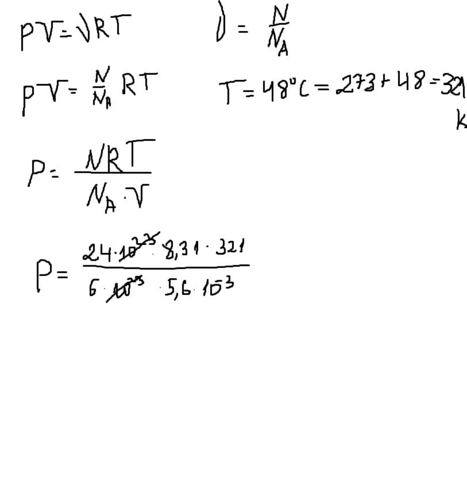 PV=νRT
ν = N/N_A
PV = N/N_A RT
T = 48°C = 273 + 48 = 321
K
P = NRT / N_A · V
P = 24 · 10²³ · 8,31 · 321 / 6 · 10²³ · 5,6 · 10⁻³